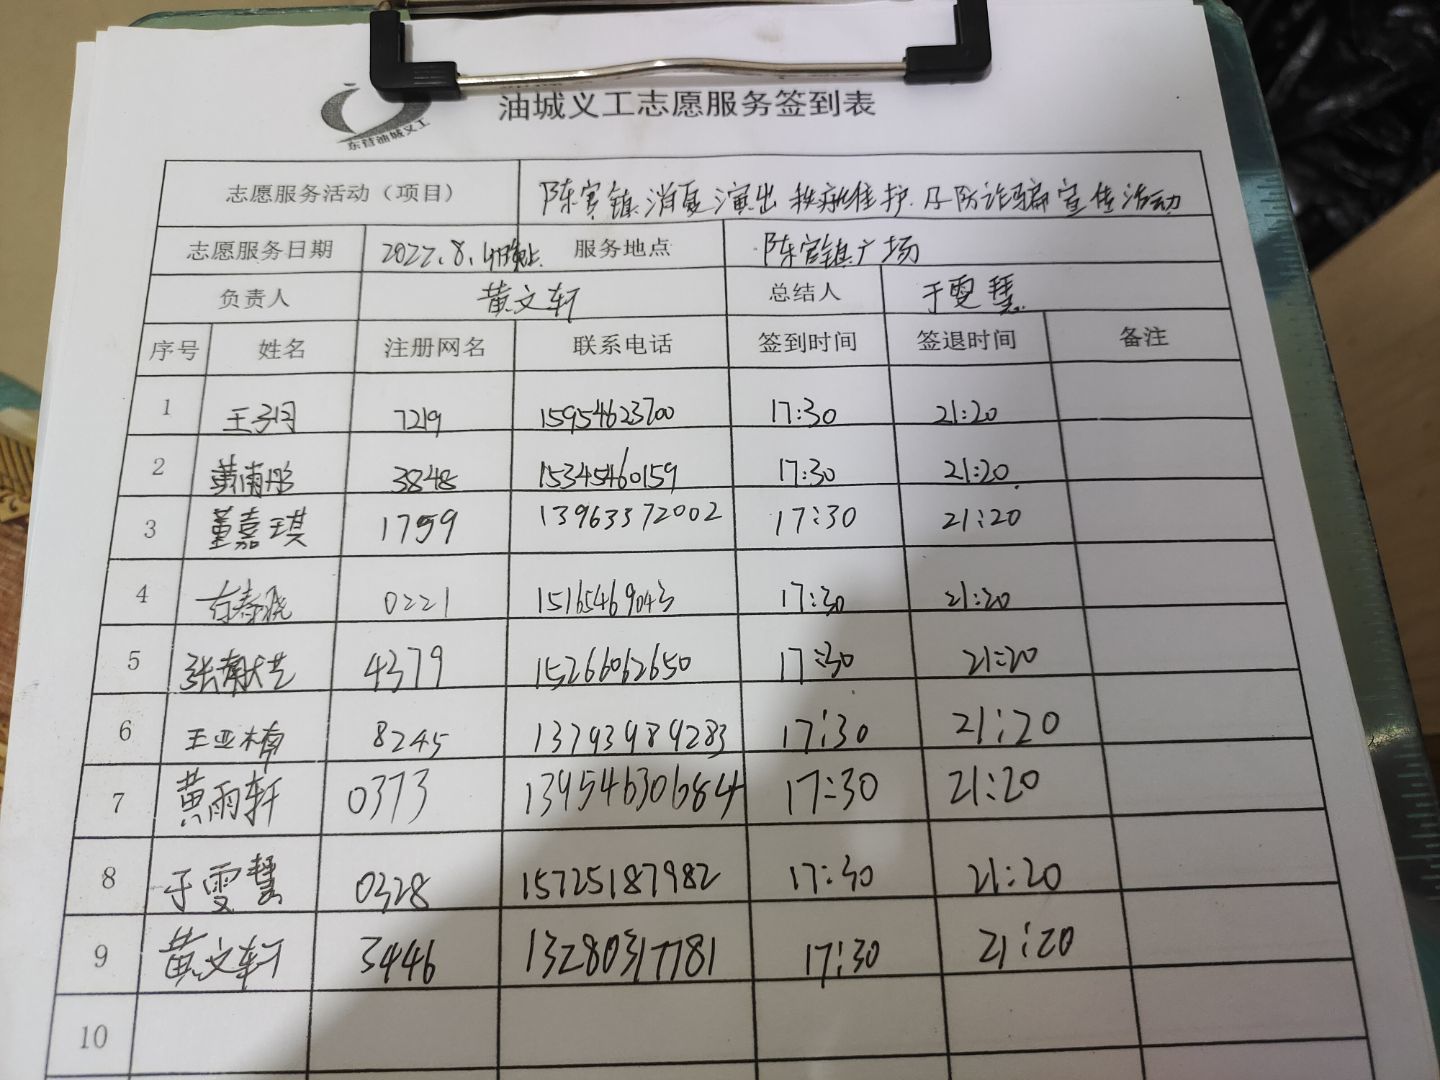 油城义工志愿服务签到表
东营油城义工
志愿服务活动（项目） 陈官镇消夏演出秩序维护及防诈骗宣传活动
志愿服务日期 2022.8. 晚上 服务地点 陈官镇广场
负责人 黄文轩 总结人 于雯慧
序号 姓名 注册网名 联系电话 签到时间 签退时间 备注
1 王子月 7219 15954623700 17:30 21:20
2 黄南彤 3848 15345460159 17:30 21:20
3 董嘉琪 1759 13963372002 17:30 21:20
4 0221 15165469043 17:30 21:20
5 张献艺 4379 15266062650 17:30 21:20
6 王亚楠 8245 13793989283 17:30 21:20
7 黄雨轩 0373 13954630684 17:30 21:20
8 于雯慧 0328 15725187982 17:30 21:20
9 黄文轩 3446 13280317781 17:30 21:20
10